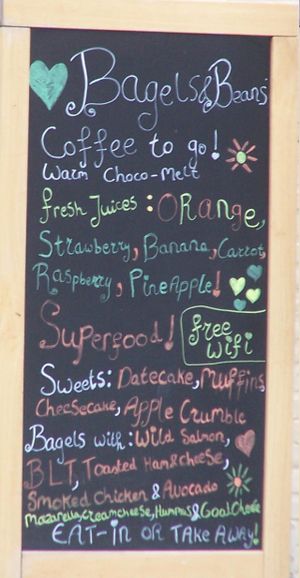 Bagels & Beans
Coffee to go!
Warm Choco-Melt
fresh Juices: Orange,
Strawberry, Banana, Carrot,
Raspberry, PineApple!
Superfood!
free
wifi
Sweets: Datecake, Muffins,
Cheesecake, Apple Crumble
Bagels with: Wild Salmon,
BLT, Toasted Ham & cheese,
Smoked Chicken & Avocado
Mozarella, Creamcheese, Hummus & Goat Cheese
EAT-IN OR TAKE AWAY!